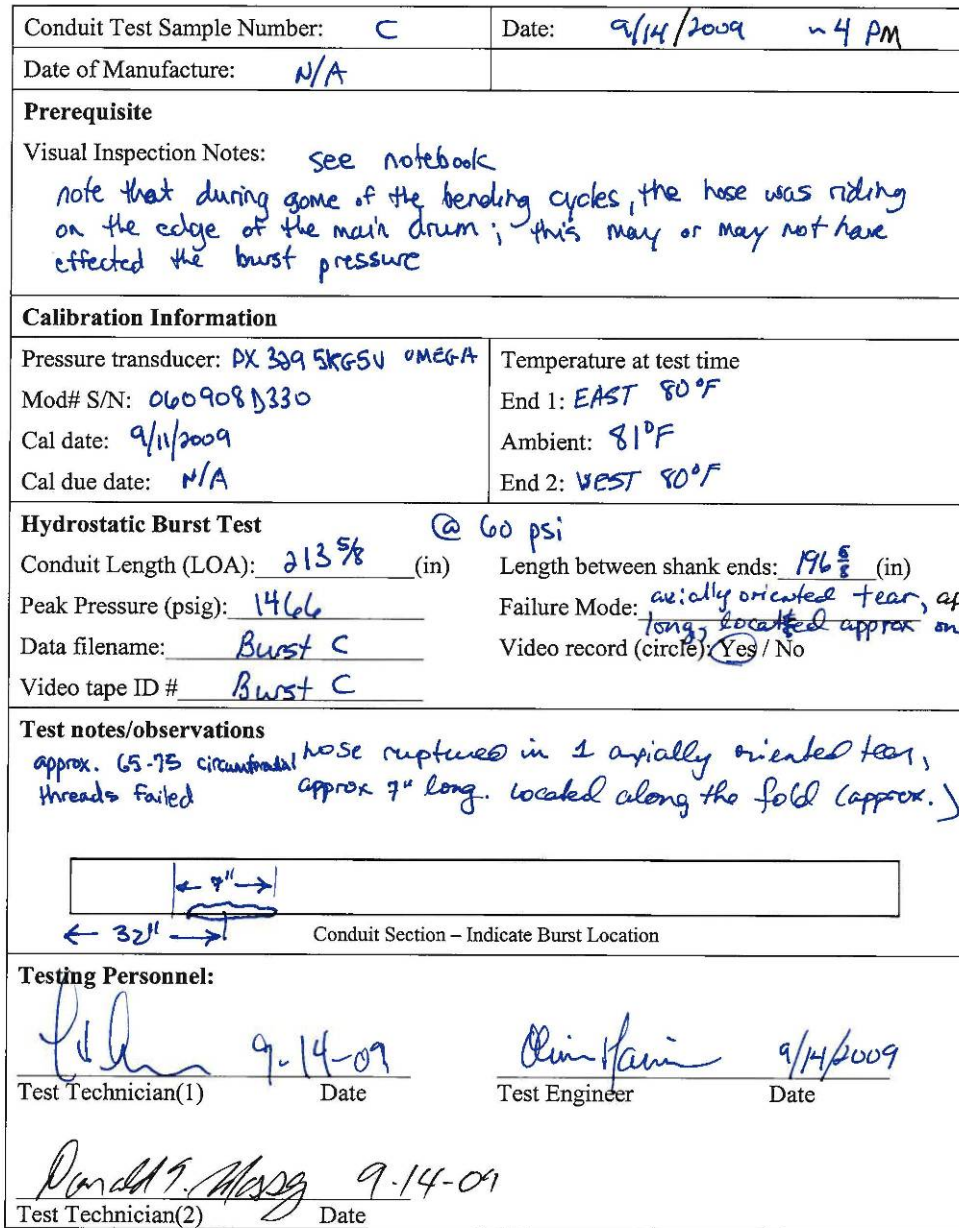 Conduit Test Sample Number: C
Date: 9/14/2009 ~4 PM
Date of Manufacture: N/A
Prerequisite
Visual Inspection Notes: see notebook
note that during some of the bending cycles, the hose was riding
on the edge of the main drum; this may or may not have
effected the burst pressure
Calibration Information
Pressure transducer: PX 329 5KG5V OMEGA
Mod# S/N: 060908D330
Cal date: 9/11/2009
Cal due date: N/A
Temperature at test time
End 1: EAST 80°F
Ambient: 81°F
End 2: WEST 80°F
Hydrostatic Burst Test @ 60 psi
Conduit Length (LOA): 213 5/8 (in)
Length between shank ends: 196 5/8 (in)
Peak Pressure (psig): 1466
Failure Mode: axially oriented tear, ap
long, located approx on
Data filename: Burst C
Video record (circle): Yes / No
Video tape ID # Burst C
Test notes/observations
approx. 65-75 circumferential
threads failed
hose ruptured in 1 axially oriented tear,
approx 7" long. located along the fold (approx.)
7"
32"
Conduit Section – Indicate Burst Location
Testing Personnel:
9-14-09
9/14/2009
Test Technician(1) Date
Test Engineer Date
Donald 9-14-09
Test Technician(2) Date